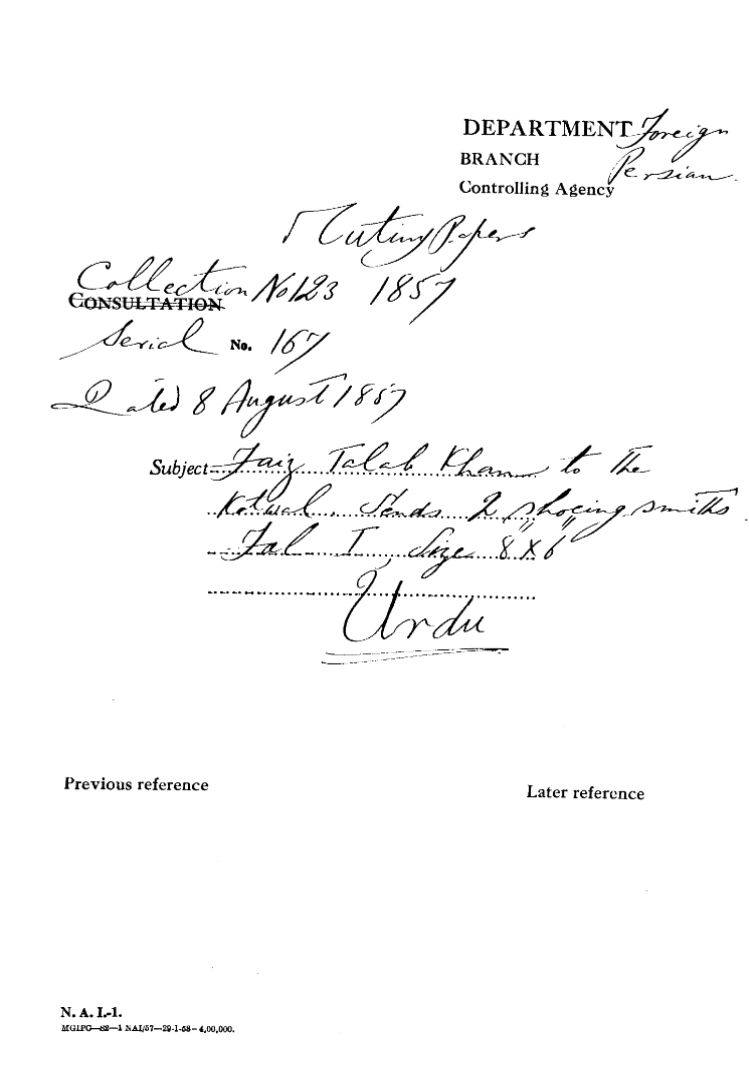 DEPARTMENT Foreign
BRANCH Persian.
Controlling Agency
Mutiny Papers
Collection No 123 1857
CONSULTATION
Serial No. 167
Dated 8 August 1857
Subject Faiz Talab Khan to the
Kotwal. Sends 2 shoeing smiths
Fol I, Size 8" X 6"
Urdu
Previous reference
Later reference
N. A. I.-1.
MGIPC—S2—1 NAI/57—29-1-58—4,00,000.